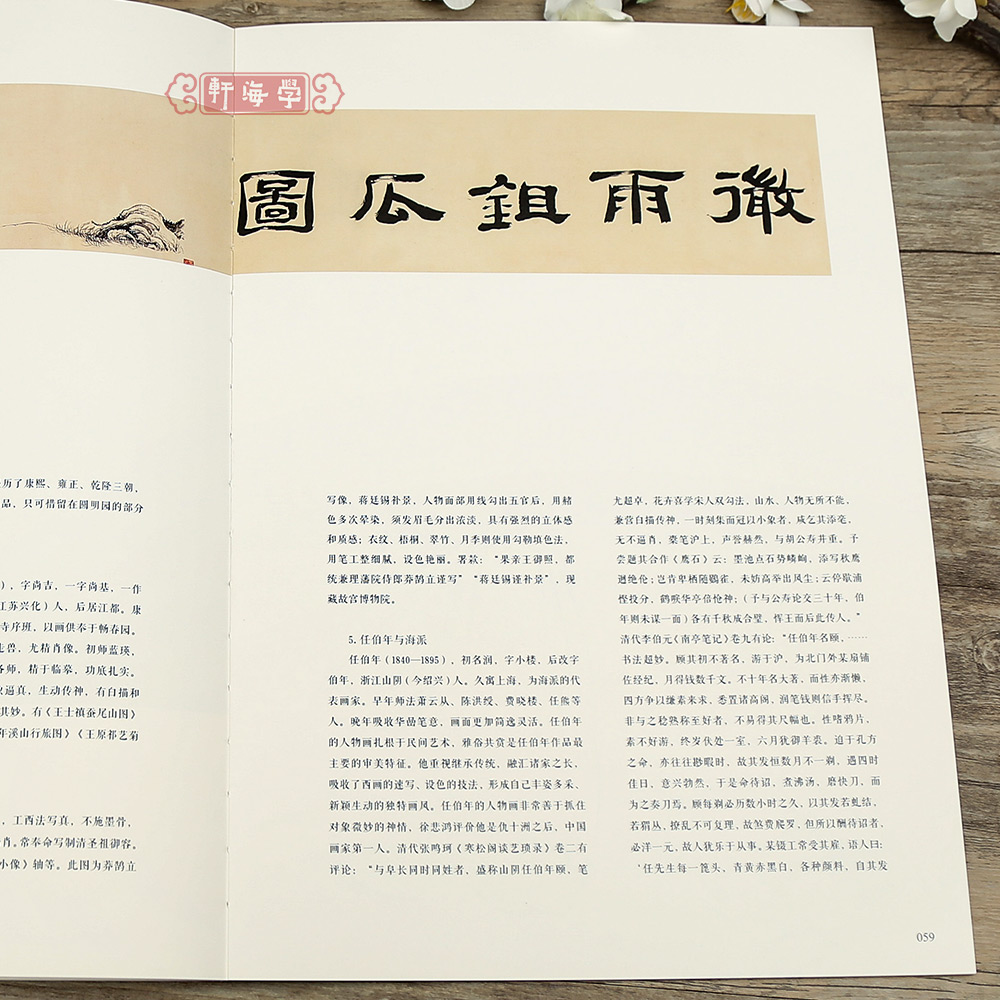 軒海学
圖瓜鉏雨黴
历了康熙、雍正、乾隆三朝，
品，只可惜留在圆明园的部分
），字尚吉，一字尚基，一作
江苏兴化）人，后居江都。康
寺序班，以画供奉于畅春园。
走兽，尤精肖像。初师蓝瑛，
各师，精于临摹，功底扎实。
逼真，生动传神，有白描和
其妙。有《王士禛蚕尾山图》
年溪山行旅图》《王原祁艺菊
，工西法写真，不施墨骨，
肖。常奉命写制清圣祖御容。
小像》轴等。此图为莽鹄立
写像，蒋廷锡补景，人物面部用线勾出五官后，用赭
色多次晕染，须发眉毛分出浓淡，具有强烈的立体感
和质感；衣纹、梧桐、翠竹、月季则使用勾勒填色法，
用笔工整细腻，设色艳丽。署款：“果亲王御照，都
统兼理藩院侍郎莽鹄立谨写”“蒋廷锡谨补景”，现
藏故宫博物院。
5. 任伯年与海派
任伯年（1840—1895），初名润，字小楼，后改字
伯年，浙江山阴（今绍兴）人。久寓上海，为海派的代
表画家。早年师法萧云从、陈洪绶、费晓楼、任熊等
人。晚年吸收华喦笔意，画面更加简逸灵活。任伯年
的人物画扎根于民间艺术，雅俗共赏是任伯年作品最
主要的审美特征。他重视继承传统，融汇诸家之长，
吸收了西画的速写、设色的技法，形成自己丰姿多采、
新颖生动的独特画风。任伯年的人物画非常善于抓住
对象微妙的神情，徐悲鸿评价他是仇十洲之后，中国
画家第一人。清代张鸣珂《寒松阁谈艺琐录》卷二有
评论：“与阜长同时同姓者，盛称山阴任伯年颐，笔
尤超卓，花卉喜学宋人双勾法，山水、人物无所不能，
兼营白描传神，一时刻集而冠以小象者，咸乞其添毫，
无不逼肖，橐笔沪上，声誉赫然，与胡公寿并重。予
尝题其合作《鹰石》云：墨池点石势嶙峋，添写秋鹰
迥绝伦；岂肯卑栖随鷃雀，未妨高举出风尘；云停歇浦
悭投分，鹤唳华亭倍怆神；（予与公寿论交三十年，伯
年则未谋一面）各有千秋成合璧，恽王而后此传人。”
清代李伯元《南亭笔记》卷九有论：“任伯年名颐，……
书法超妙。顾其初不著名，游于沪，为北门外某扇铺
佐经纪，月得钱数千文。不十年名大著，而性亦渐懒，
四方争以缣素来求，悉置诸高阁，润笔钱则信手挥尽。
非与之稔熟称至好者，不易得其尺幅也。性嗜鸦片，
素不好游，终岁伏处一室，六月犹御羊裘。迫于孔方
之命，亦往往尠暇时，故其发恒数月不一剃，遇四时
佳日，意兴勃然，于是命待诏，煮沸汤，磨快刀，而
为之奏刀焉。顾每剃必历数小时之久，以其发若虬结，
若猬丛，撩乱不可复理，故煞费爬罗，但所以酬待诏者，
必洋一元，故人犹乐于从事。某镊工常受其雇，语人曰：
‘任先生每一篦头，青黄赤黑白，各种颜料，自其发
059